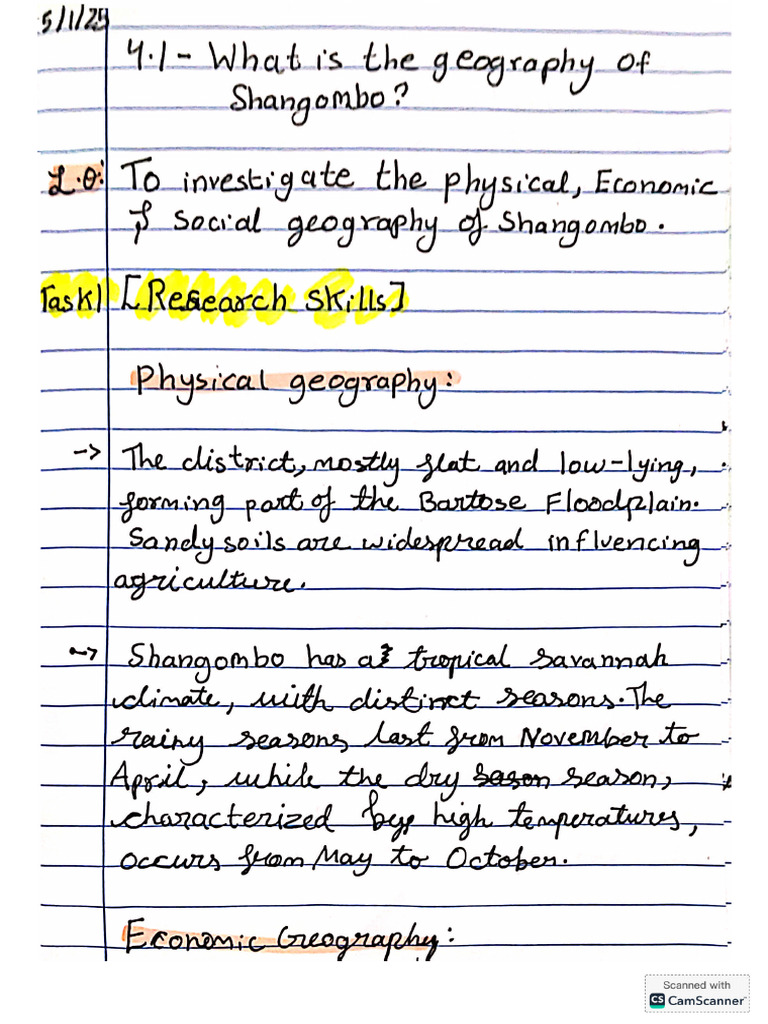 5/1/25
4.1 - What is the geography of
Shangombo?
L.O: To investigate the physical, Economic
& social geography of Shangombo.
Task 1 [Research skills]
Physical geography:
-> The district, mostly flat and low-lying,
forming part of the Bartose Floodplain.
Sandy soils are widespread influencing
agriculture.
-> Shangombo has a tropical savannah
climate, with distinct seasons. The
rainy seasons last from November to
April, while the dry sason season,
characterized by high temperatures,
occurs from May to October.
Economic Geography:
Scanned with
CS CamScanner